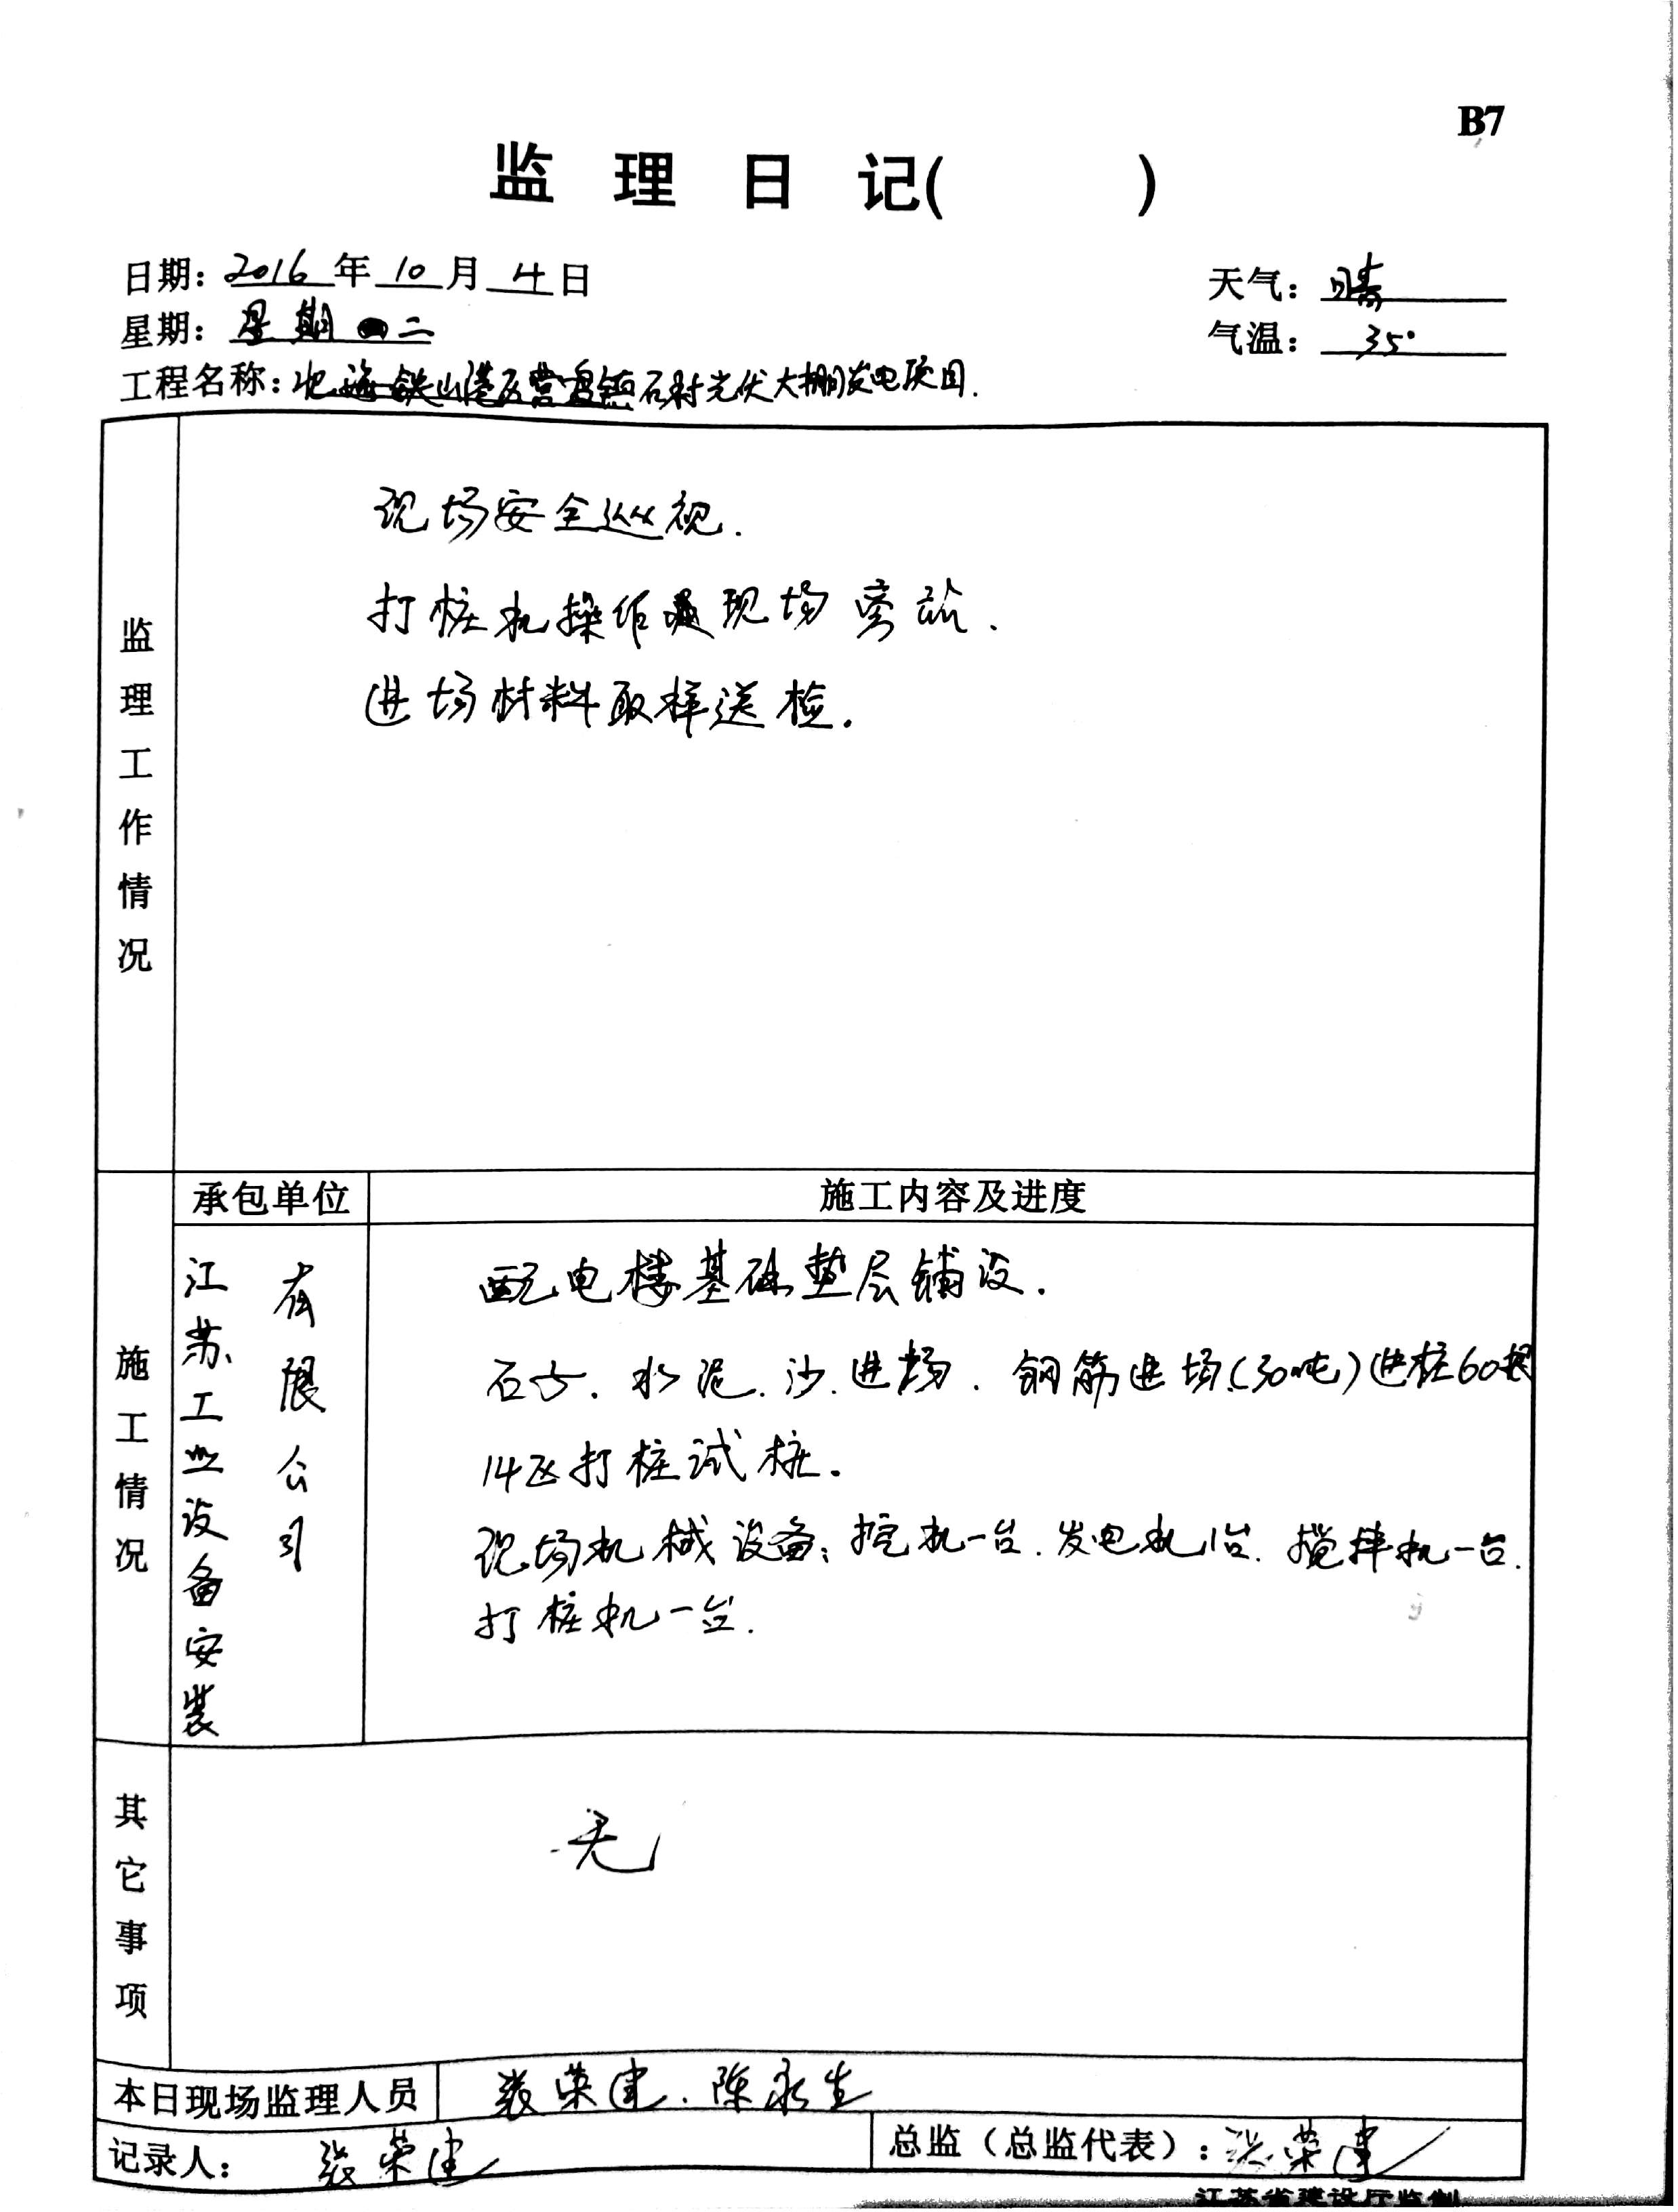 B7
监 理 日 记( )
日期: 2016 年 10 月 4 日
天气: 晴
星期: 星期二
气温: 35°
工程名称: 北海铁山港区营盘镇石村光伏大棚发电项目.
监理工作情况
现场安全巡视.
打桩机操作 现场旁站.
进场材料取样送检.
承包单位
施工内容及进度
施工情况
江苏工业设备安装
有限公司
配电楼基础垫层铺设.
石子. 水泥. 沙. 进场. 钢筋进场(30吨)进桩60根
14区打桩试桩.
现场机械设备: 挖机一台. 发电机1台. 搅拌机一台.
打桩机一台.
其它事项
无
本日现场监理人员
张荣建. 陈永生
记录人: 张荣建
总监（总监代表）: 张荣建
江苏省建设厅监制